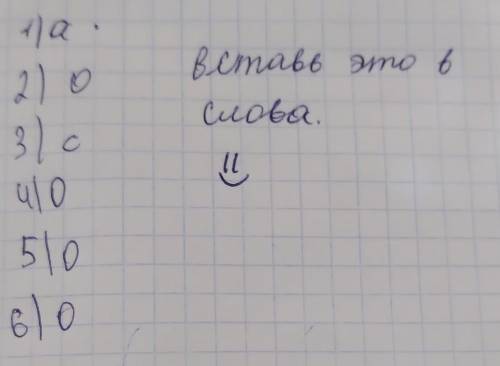 1) а.
2) о
3) с
4) о
5) о
6) о
вставь это в
слова.